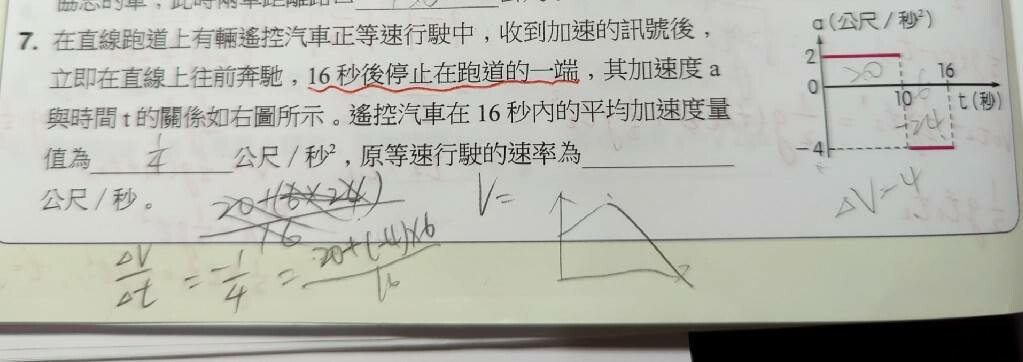 7. 在直線跑道上有輛遙控汽車正等速行駛中，收到加速的訊號後，
立即在直線上往前奔馳，16 秒後停止在跑道的一端，其加速度 a
與時間 t 的關係如右圖所示。遙控汽車在 16 秒內的平均加速度量
值為 1/4 公尺／秒²，原等速行駛的速率為
公尺／秒。
a (公尺／秒²)
2
20
0
10
6
16
t (秒)
-24
-4
ΔV -4
V=
ΔV/Δt = -1/4 = 20+(-4)×6/16